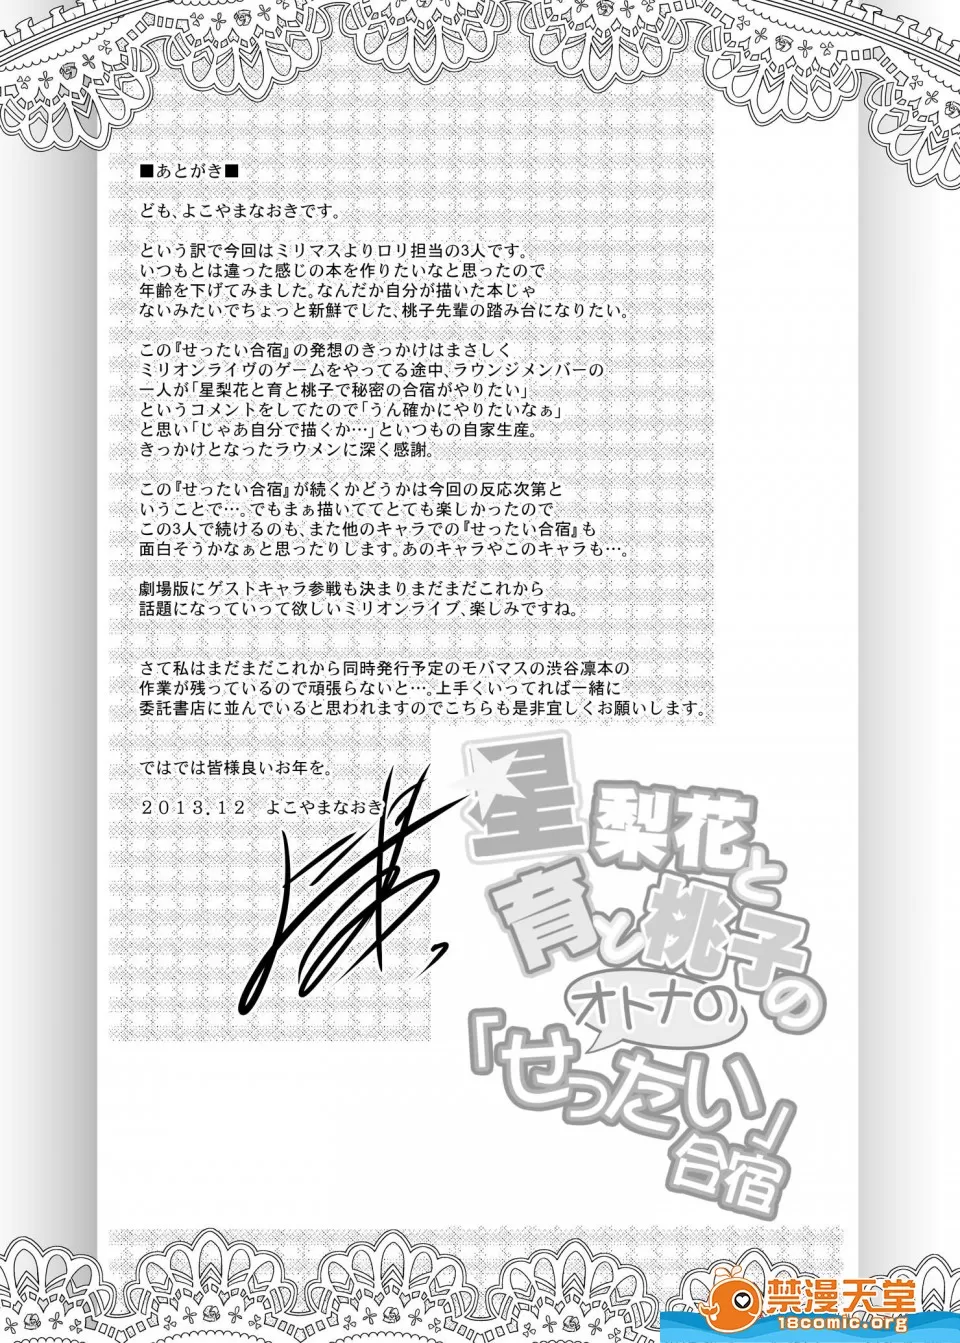 ■あとがき■
ども、よこやまなおきです。
という訳で今回はミリマスよりロリ担当の3人です。
いつもとは違った感じの本を作りたいなと思ったので
年齢を下げてみました。なんだか自分が描いた本じゃ
ないみたいでちょっと新鮮でした、桃子先輩の踏み台になりたい。
この『せったい合宿』の発想のきっかけはまさしく
ミリオンライヴのゲームをやってる途中、ラウンジメンバーの
一人が「星梨花と育と桃子で秘密の合宿がやりたい」
というコメントをしてたので「うん確かにやりたいなぁ」
と思い「じゃあ自分で描くか…」といつもの自家生産。
きっかけとなったラウメンに深く感謝。
この『せったい合宿』が続くかどうかは今回の反応次第と
いうことで…。でもまぁ描いててとても楽しかったので
この3人で続けるのも、また他のキャラでの『せったい合宿』も
面白そうかなぁと思ったりします。あのキャラやこのキャラも…。
劇場版にゲストキャラ参戦も決まりまだまだこれから
話題になっていって欲しいミリオンライブ、楽しみですね。
さて私はまだまだこれから同時発行予定のモバマスの渋谷凛本の
作業が残っているので頑張らないと…。上手くいってれば一緒に
委託書店に並んでいると思われますのでこちらも是非宜しくお願いします。
ではでは皆様良いお年を。
２０１３．１２　よこやまなおき
星梨花と
育と桃子の
オトナの
「せったい」
合宿
禁漫天堂
18comic.org